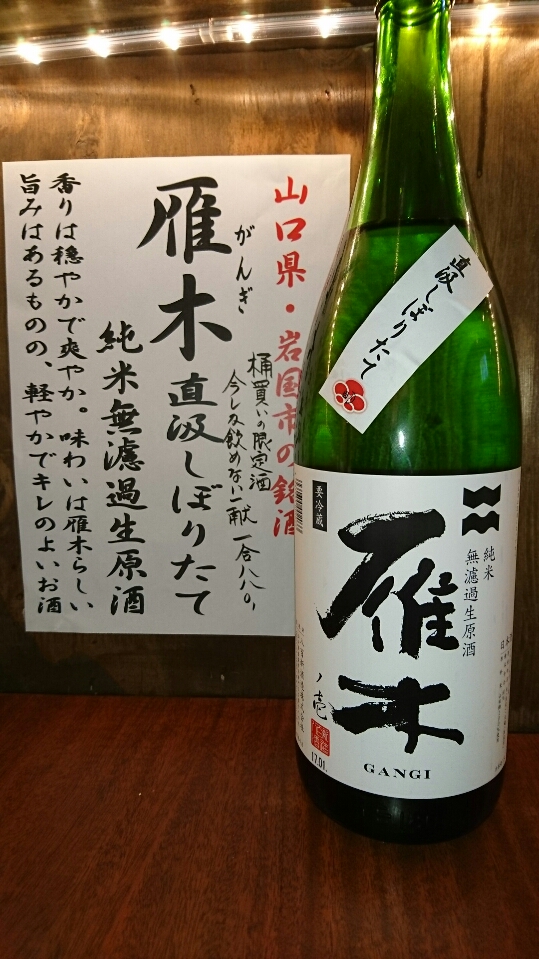 山口県・岩国市の銘酒
桶買いの限定酒
今しか飲めない一献 一合八八〇,
がんぎ
雁木 直汲しぼりたて
純米無濾過生原酒
香りは穏やかで爽やか。味わいは雁木らしい
旨みはあるものの、軽やかでキレのよいお酒
直汲しぼりたて
純米
無濾過生原酒
要冷蔵
雁木
ノ壱
GANGI
17.01